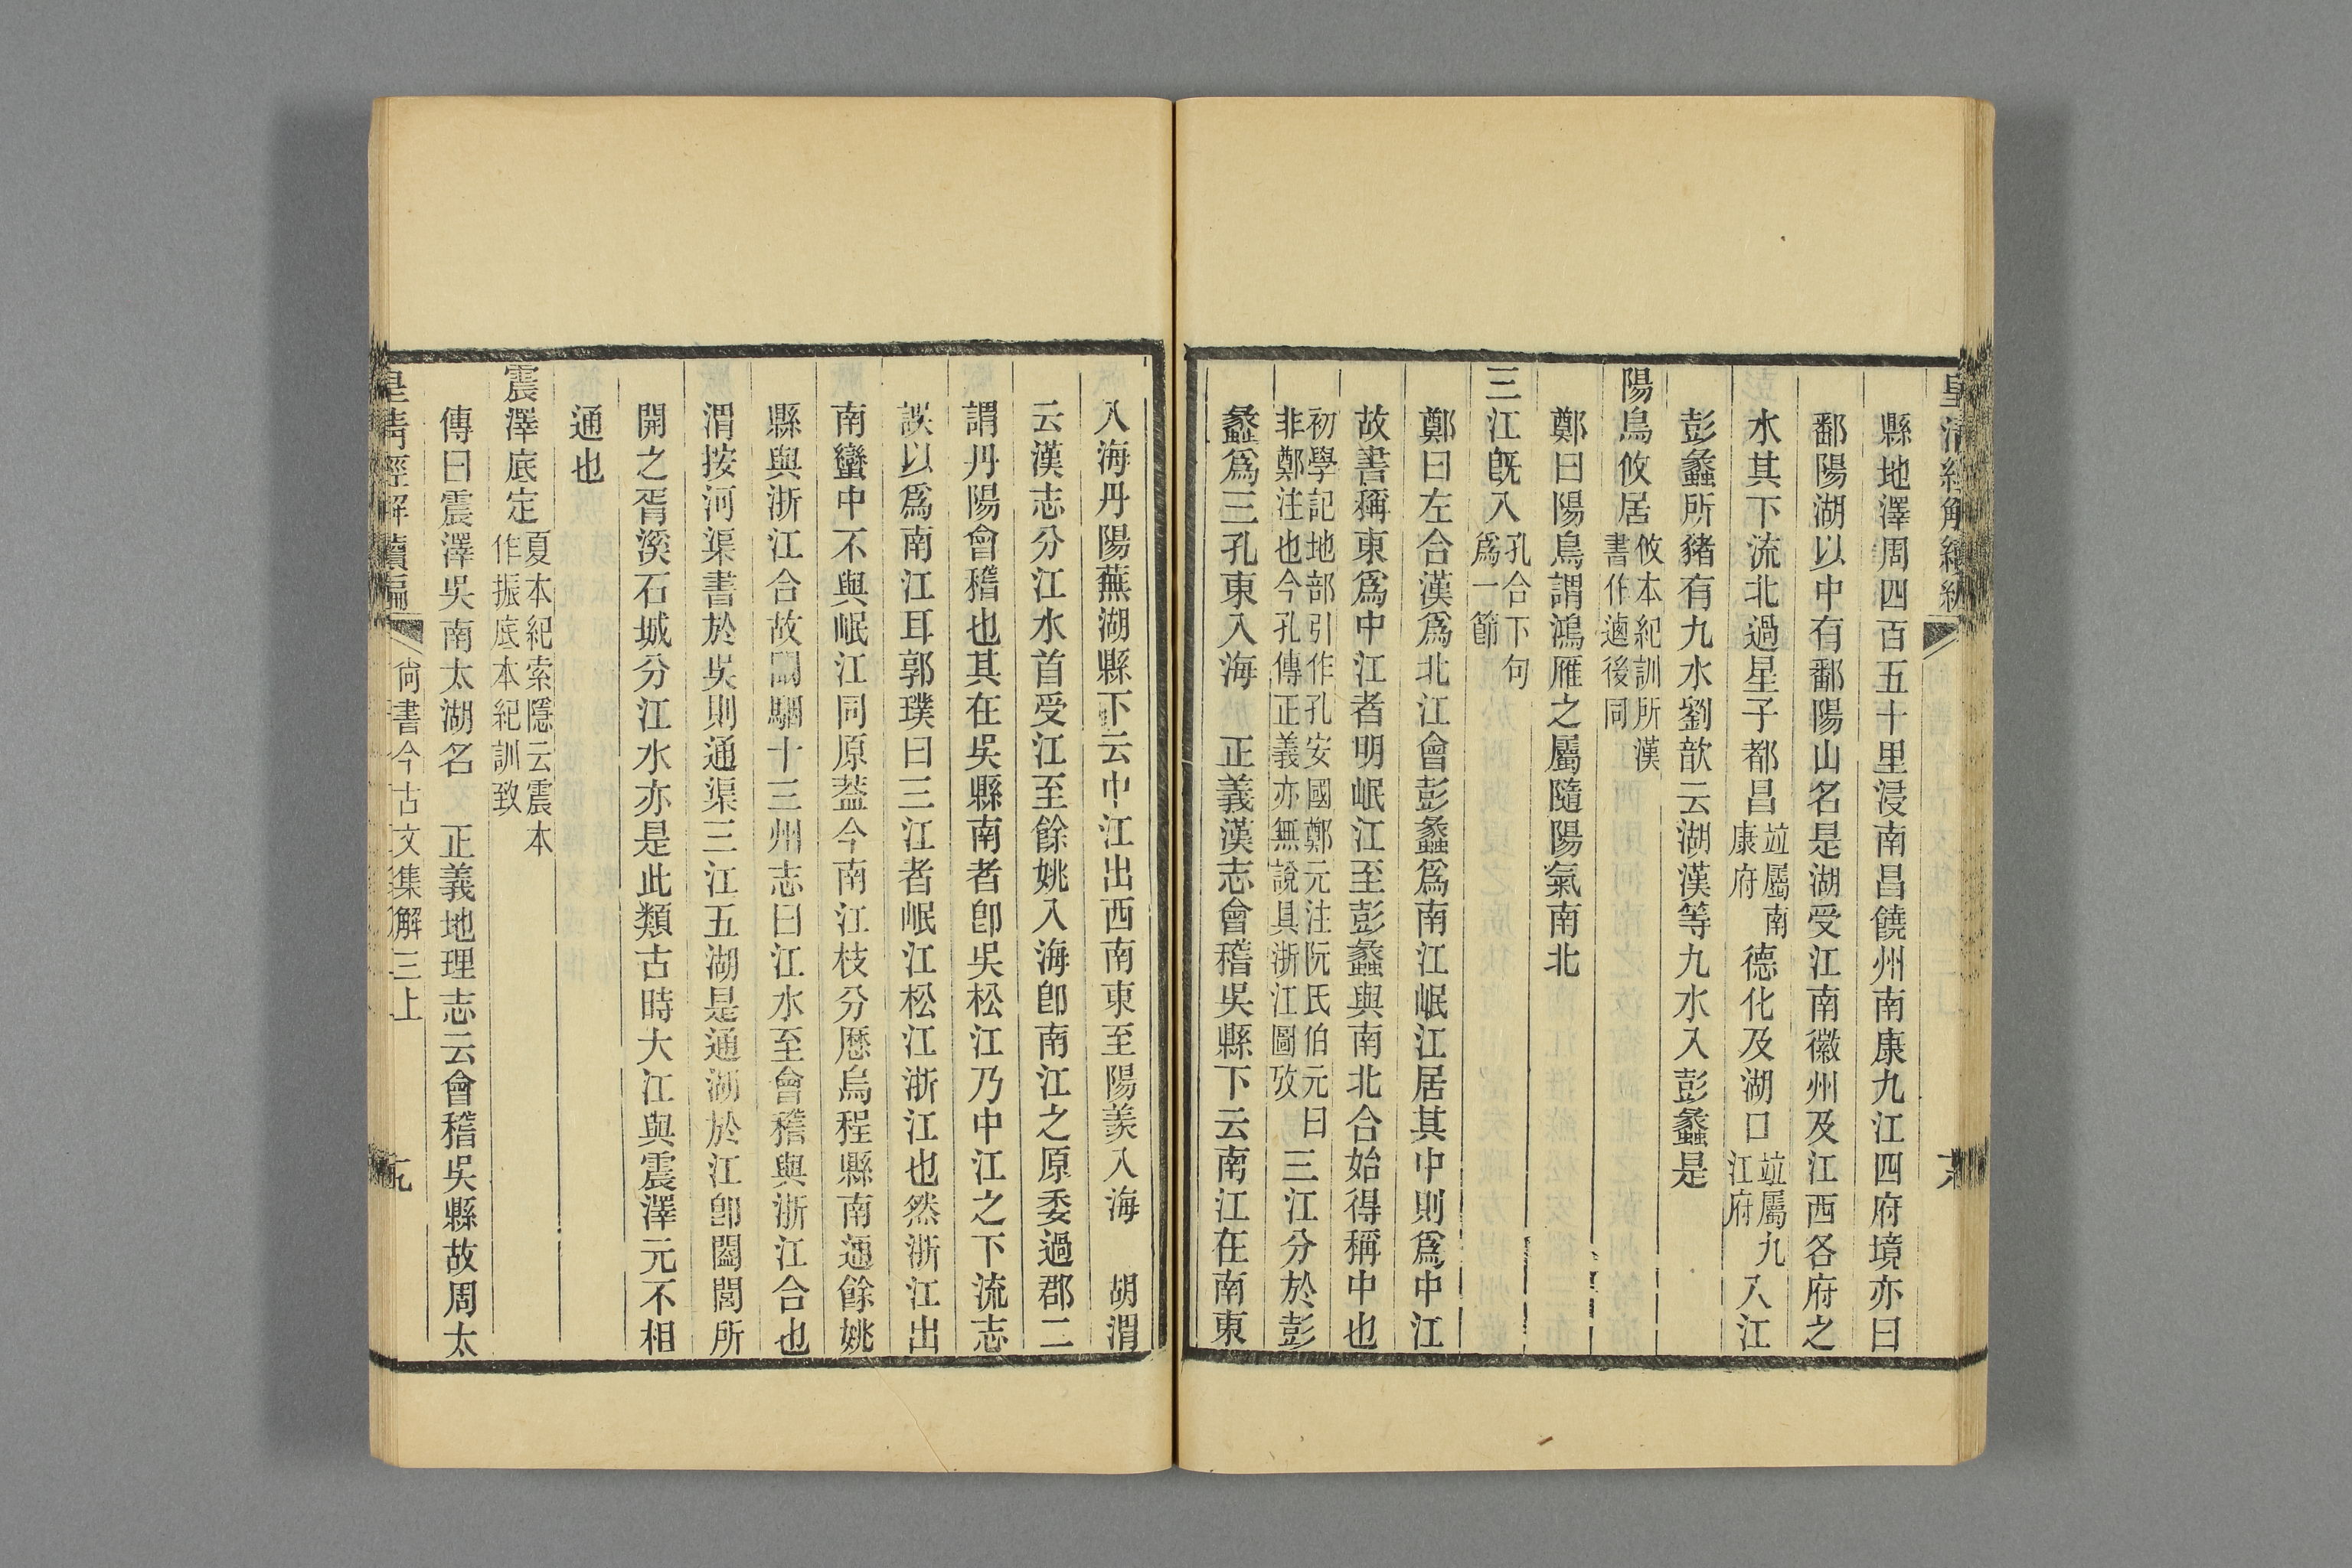 皇清經解續編
縣地澤周四百五十里浸南昌饒州南康九江四府境亦曰
鄱陽湖以中有鄱陽山名是湖受江南徽州及江西各府之
水其下流北過星子都昌竝屬南康府德化及湖口竝屬九江府入江
彭蠡所豬有九水劉歆云湖漢等九水入彭蠡是
陽鳥攸居攸本紀訓所漢書作逌後同
鄭曰陽鳥謂鴻雁之屬隨陽氣南北
三江旣入孔合下句爲一節
鄭曰左合漢爲北江會彭蠡爲南江岷江居其中則爲中江
故書稱東爲中江者明岷江至彭蠡與南北合始得稱中也
初學記地部引作孔安國鄭元注阮氏伯元曰非鄭注也今孔傳正義亦無說具浙江圖攷三江分於彭
蠡爲三孔東入海　正義漢志會稽吳縣下云南江在南東
入海丹陽蕪湖縣下云中江出西南東至陽羨入海　胡渭
云漢志分江水首受江至餘姚入海卽南江之原委過郡二
謂丹陽會稽也其在吳縣南者卽吳松江乃中江之下流志
誤以爲南江耳郭璞曰三江者岷江松江浙江也然浙江出
南蠻中不與岷江同原葢今南江枝分歷烏程縣南通餘姚
縣與浙江合故闞駰十三州志曰江水至會稽與浙江合也
渭按河渠書於吳則通渠三江五湖是通湖於江卽闔閭所
開之胥溪石城分江水亦是此類古時大江與震澤元不相
通也
震澤底定夏本紀索隱云震本作振底本紀訓致
傳曰震澤吳南太湖名　正義地理志云會稽吳縣故周太
皇清經解續編　尙書今古文集解三上